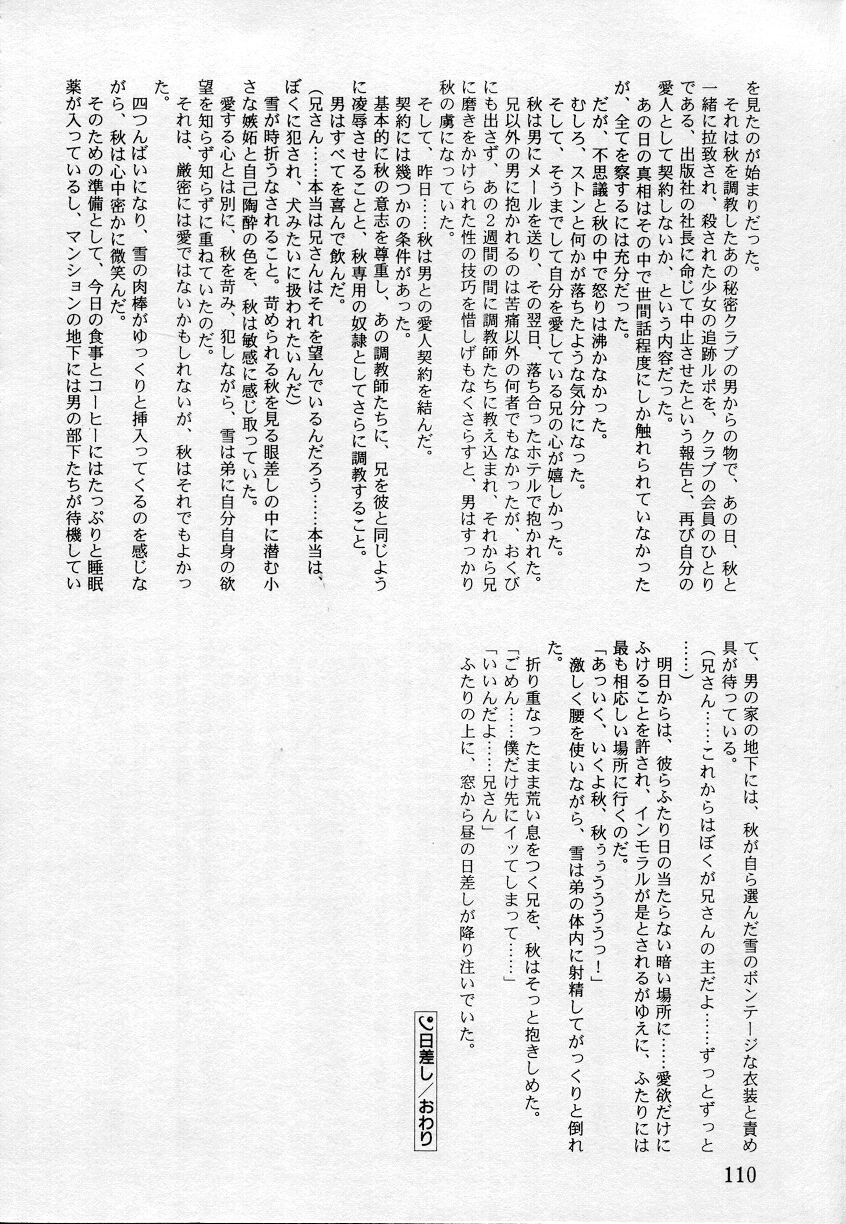 を見たのが始まりだった。
それは秋を調教したあの秘密クラブの男からの物で、あの日、秋と
一緒に拉致され、殺された少女の追跡ルポを、クラブの会員のひとり
である、出版社の社長に命じて中止させたという報告と、再び自分の
愛人として契約しないか、という内容だった。
あの日の真相はその中で世間話程度にしか触れられていなかった
が、全てを察するには充分だった。
だが、不思議と秋の中で怒りは沸かなかった。
むしろ、ストンと何かが落ちたような気分になった。
そして、そうまでして自分を愛している兄の心が嬉しかった。
秋は男にメールを送り、その翌日、落ち合ったホテルで抱かれた。
兄以外の男に抱かれるのは苦痛以外の何者でもなかったが、おくび
にも出さず、あの２週間の間に調教師たちに教え込まれ、それから兄
に磨きをかけられた性の技巧を惜しげもなくさらすと、男はすっかり
秋の虜になっていた。
そして、昨日……秋は男との愛人契約を結んだ。
契約には幾つかの条件があった。
基本的に秋の意志を尊重し、あの調教師たちに、兄を彼と同じよう
に凌辱させることと、秋専用の奴隷としてさらに調教すること。
男はすべてを喜んで飲んだ。
（兄さん……本当は兄さんはそれを望んでいるんだろう……本当は、
ぼくに犯され、犬みたいに扱われたいんだ）
雪が時折うなされること。苛められる秋を見る眼差しの中に潜む小
さな嫉妬と自己陶酔の色を、秋は敏感に感じ取っていた。
愛する心とは別に、秋を苛み、犯しながら、雪は弟に自分自身の欲
望を知らず知らずに重ねていたのだ。
それは、厳密には愛ではないかもしれないが、秋はそれでもよかっ
た。
四つんばいになり、雪の肉棒がゆっくりと挿入ってくるのを感じな
がら、秋は心中密かに微笑んだ。
そのための準備として、今日の食事とコーヒーにはたっぷりと睡眠
薬が入っているし、マンションの地下には男の部下たちが待機してい
て、男の家の地下には、秋が自ら選んだ雪のボンテージな衣装と責め
具が待っている。
（兄さん……これからはぼくが兄さんの主だよ……ずっとずっと
……）
明日からは、彼らふたり日の当たらない暗い場所に……愛欲だけに
ふけることを許され、インモラルが是とされるがゆえに、ふたりには
最も相応しい場所に行くのだ。
「あっいく、いくよ秋、秋ぅぅうううっ！」
激しく腰を使いながら、雪は弟の体内に射精してがっくりと倒れ
た。
折り重なったまま荒い息をつく兄を、秋はそっと抱きしめた。
「ごめん……僕だけ先にイッてしまって……」
「いいんだよ……兄さん」
ふたりの上に、窓から昼の日差しが降り注いでいた。
日差し／おわり
110